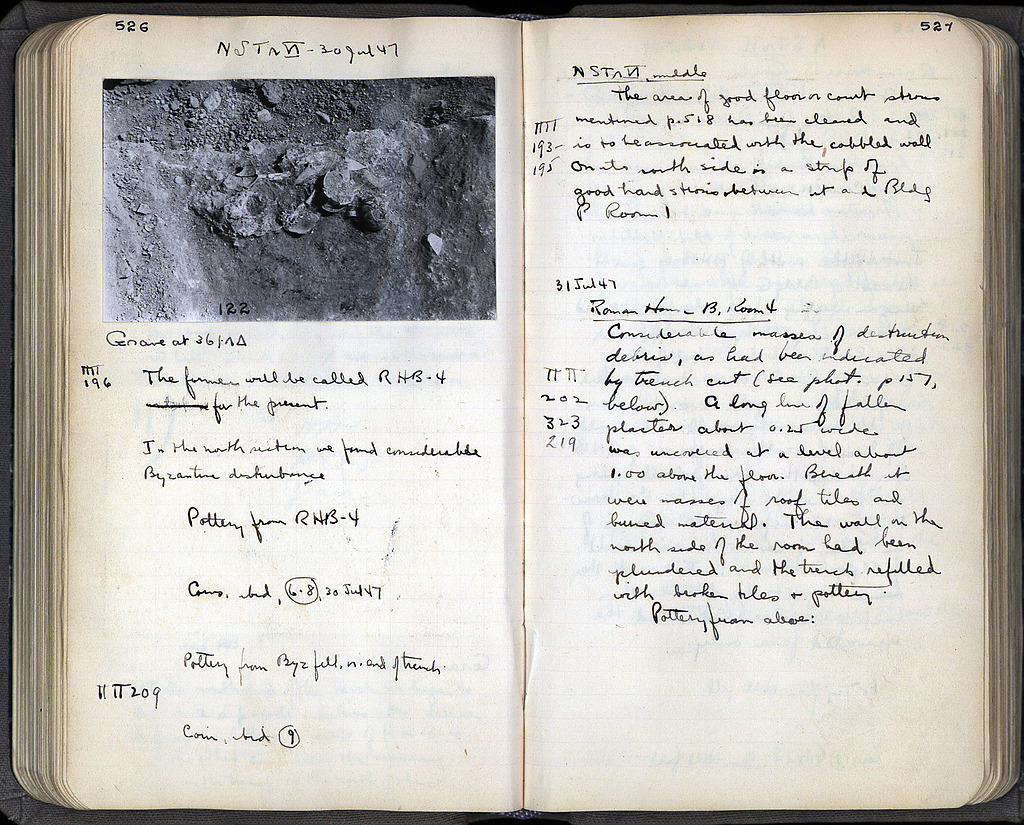 526
NSTrVI - 30 Jul 47
122
Grave at 36/ΛΔ
ΠΠ
196
The former will be called RHB-4
for the present.
In the north section we found considerable
Byzantine disturbance
Pottery from RHB-4
Coins, ibid, 6-8, 30 Jul 47
Pottery from Byz fill, n. end of trench.
ΠΠ 209
Coin, ibid 9
527
NSTrVI, middle
The area of good floor or court strosis
mentioned p. 518 has been cleared and
ΠΠ
193-
195
is to be associated with the cobbled wall
On its north side is a strip of
good hard strosis between it and Bldg
P Room 1
31 Jul 47
Roman House B, Room 4
Considerable masses of destruction
debris, as had been indicated
ΠΠ
202
323
219
by trench cut (see phot. p 157,
below). A long line of fallen
plaster about 0.25 wide
was uncovered at a level about
1.00 above the floor. Beneath it
were masses of roof tiles and
burned material. The wall on the
north side of the room had been
plundered and the trench refilled
with broken tiles + pottery.
Pottery from above: